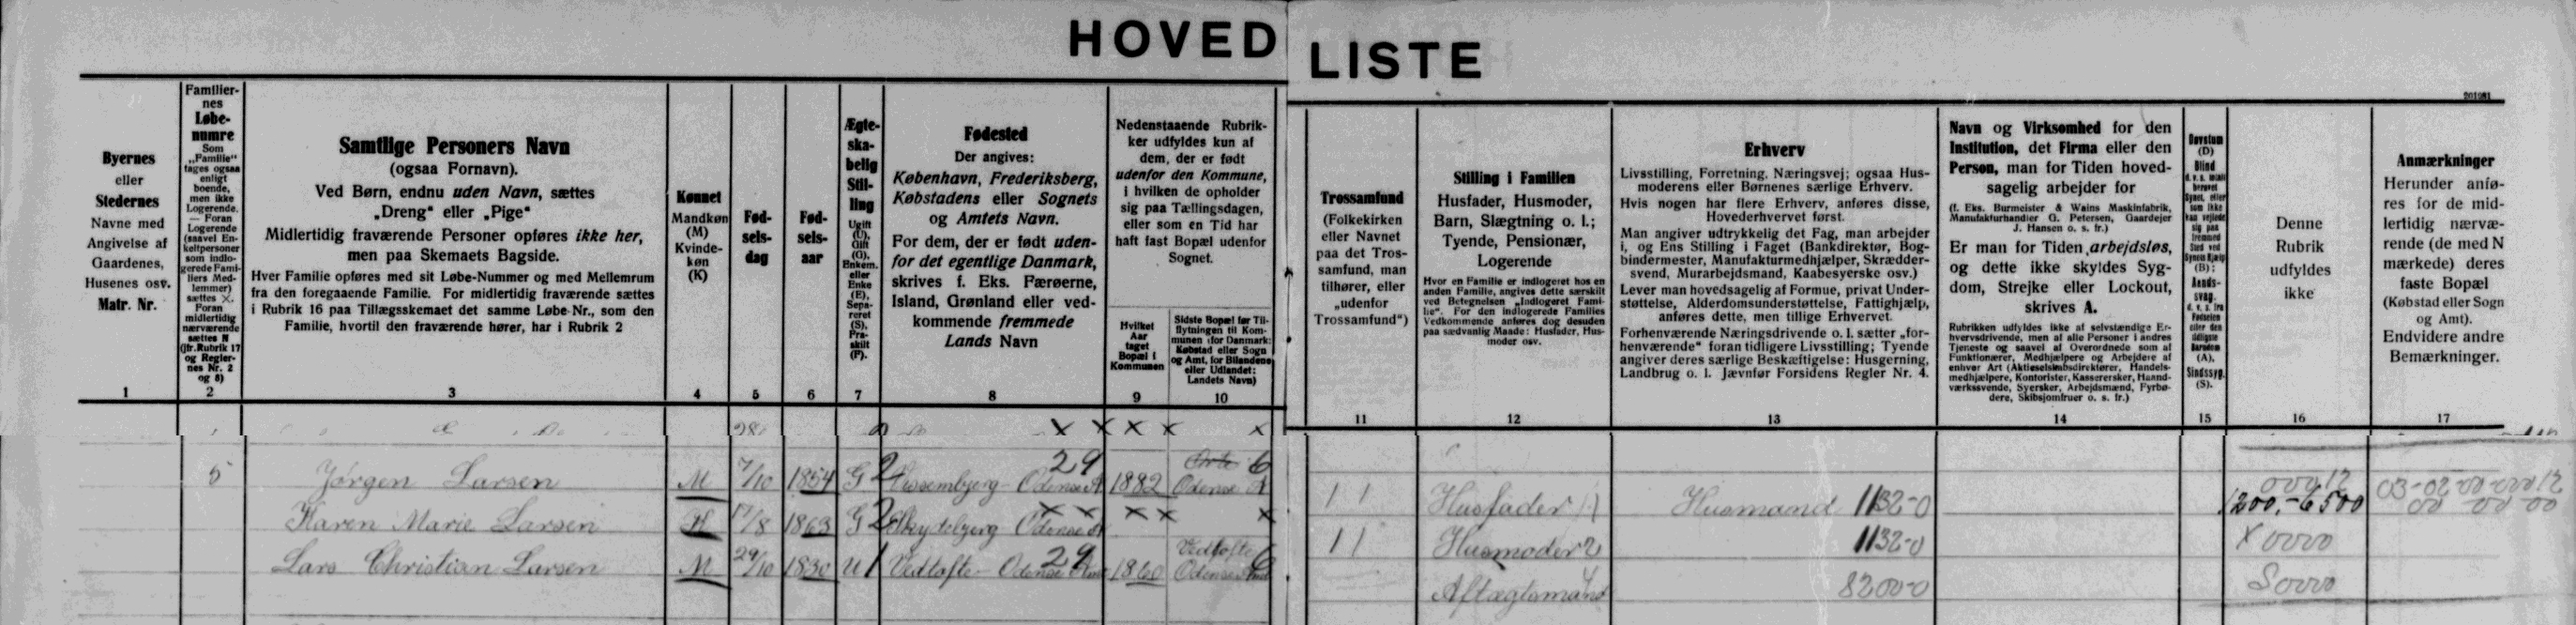 HOVED LISTE
201281
Byernes
eller
Stedernes
Navne med
Angivelse af
Gaardenes,
Husenes osv.
Matr. Nr.
1
Familier-
nes
Løbe-
numre
Som
„Familie"
tages ogsaa
enligt
boende,
men ikke
Logerende.
— Foran
Logerende
(saavel En-
keltpersoner
som indlo-
gerede Fami-
liers Med-
lemmer)
sættes ×.
Foran
midlertidig
nærværende
sættes N
(jfr. Rubrik 17
og Regler-
nes Nr. 2
og 8)
2
Samtlige Personers Navn
(ogsaa Fornavn).
Ved Børn, endnu uden Navn, sættes
„Dreng" eller „Pige"
Midlertidig fraværende Personer opføres ikke her,
men paa Skemaets Bagside.
Hver Familie opføres med sit Løbe-Nummer og med Mellemrum
fra den foregaaende Familie. For midlertidig fraværende sættes
i Rubrik 16 paa Tillægsskemaet det samme Løbe-Nr., som den
Familie, hvortil den fraværende hører, har i Rubrik 2
3
Kønnet
Mandkøn
(M)
Kvinde-
køn
(K)
4
Fød-
sels-
dag
5
Fød-
sels-
aar
6
Ægte-
ska-
belig
Stil-
ling
Ugift
(U),
Gift
(G),
Enkem.
eller
Enke
(E),
Sepa-
reret
(S),
Fra-
skilt
(F).
7
Fødested
Der angives:
København, Frederiksberg,
Købstadens eller Sognets
og Amtets Navn.
For dem, der er født uden-
for det egentlige Danmark,
skrives f. Eks. Færøerne,
Island, Grønland eller ved-
kommende fremmede
Lands Navn
8
Nedenstaaende Rubrik-
ker udfyldes kun af
dem, der er født
udenfor den Kommune,
i hvilken de opholder
sig paa Tællingsdagen,
eller som en Tid har
haft fast Bopæl udenfor
Sognet.
Hvilket
Aar
taget
Bopæl i
Kommunen
9
Sidste Bopæl før Til-
flytningen til Kom-
munen (for Danmark:
Købstad eller Sogn
og Amt, for Bilandene
eller Udlandet:
Landets Navn)
10
Trossamfund
(Folkekirken
eller Navnet
paa det Tros-
samfund, man
tilhører, eller
„udenfor
Trossamfund")
11
Stilling i Familien
Husfader, Husmoder,
Barn, Slægtning o. l.;
Tyende, Pensionær,
Logerende
Hvor en Familie er indlogeret hos en
anden Familie, angives dette særskilt
ved Betegnelsen „Indlogeret Fami-
lie". For den indlogerede Families
Vedkommende anføres dog desuden
paa sædvanlig Maade: Husfader, Hus-
moder osv.
12
Erhverv
Livsstilling, Forretning, Næringsvej; ogsaa Hus-
moderens eller Børnenes særlige Erhverv.
Hvis nogen har flere Erhverv, anføres disse,
Hovederhvervet først.
Man angiver udtrykkelig det Fag, man arbejder
i, og Ens Stilling i Faget (Bankdirektør, Bog-
bindermester, Manufakturmedhjælper, Skrædder-
svend, Murarbejdsmand, Kaabesyerske osv.)
Lever man hovedsagelig af Formue, privat Under-
støttelse, Alderdomsunderstøttelse, Fattighjælp,
anføres dette, men tillige Erhvervet.
Forhenværende Næringsdrivende o. l. sætter „for-
henværende" foran tidligere Livsstilling; Tyende
angiver deres særlige Beskæftigelse: Husgerning,
Landbrug o. l. Jævnfør Forsidens Regler Nr. 4.
13
Navn og Virksomhed for den
Institution, det Firma eller den
Person, man for Tiden hoved-
sagelig arbejder for
(f. Eks. Burmeister & Wains Maskinfabrik,
Manufakturhandler G. Petersen, Gaardejer
J. Hansen o. s. fr.)
Er man for Tiden arbejdsløs,
og dette ikke skyldes Syg-
dom, Strejke eller Lockout,
skrives A.
Rubrikken udfyldes ikke af selvstændige Er-
hvervsdrivende, men af alle Personer i andres
Tjeneste og saavel af Overordnede som af
Funktionærer, Medhjælpere og Arbejdere af
enhver Art (Aktieselskabsdirektører, Handels-
medhjælpere, Kontorister, Kassererske, Haand-
værkssvende, Syersker, Arbejdsmænd, Fyrbø-
dere, Skibsjomfruer o. s. fr.)
14
Døvstum
(D)
Blind
(B);
Aands-
svag,
(A),
Sindssyg.
(S).
15
Denne
Rubrik
udfyldes
ikke
16
Anmærkninger
Herunder anfø-
res for de mid-
lertidig nærvæ-
rende (de med N
mærkede) deres
faste Bopæl
(Købstad eller Sogn
og Amt).
Endvidere andre
Bemærkninger.
17
× × × × ×
5 Jørgen Larsen M 7/10 1854 G 2 Vissenbjerg - Odense A 29 1882 Orte 6 Odense A 1 1 Husfader Husmand 1132-0 00012 1200,-6500 03-02-00-00012 00 00-00
Karen Marie Larsen K 17/8 1863 G 2 Skydebjerg Odense A × × × × × 1 1 Husmoder 2 1132-0 X 0000
Lars Christian Larsen M 29/10 1830 U 1 Vedtofte - Odense Amt 29 1860 Vedtofte 6 Odense Amt Aftægtsmand 8200-0 S0000